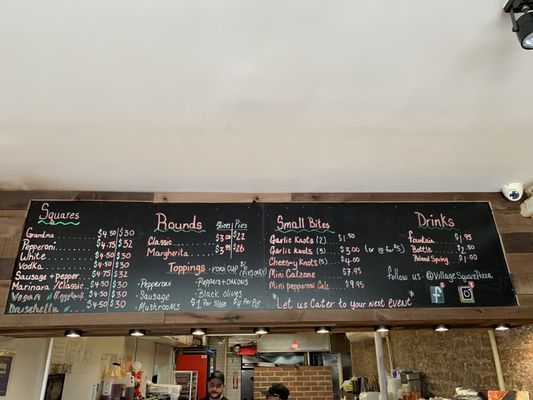 Squares
Grandma $4.50 $30
Pepperoni $4.75 $32
White $4.50 $30
Vodka $4.50 $30
Sausage + pepper. $4.75 $32
Marinara /Classic $4.50 $30
Vegan Eggplant $4.50 $30
Bruschetta $4.50 $30
Rounds
Slices Pies
Classic $3.00 $22
Margherita $3.95 $26
Toppings
Pepperoni
Sausage
Mushrooms
Peppers + onions
Black olives
$1 Per Slice
Per Pie
Small Bites
Garlic Knots (2) $1.50
Garlic Knots (5) $3.00
Chees-y Knots (5) $4.00
Mini Calzone $7.95
Mini pepperoni Calz $9.95
*Let us Cater to your next event*
Drinks
fountain $1.95
Bottle $2.50
Poland Spring $1.00
follows us: @VillageSquarePizza
f